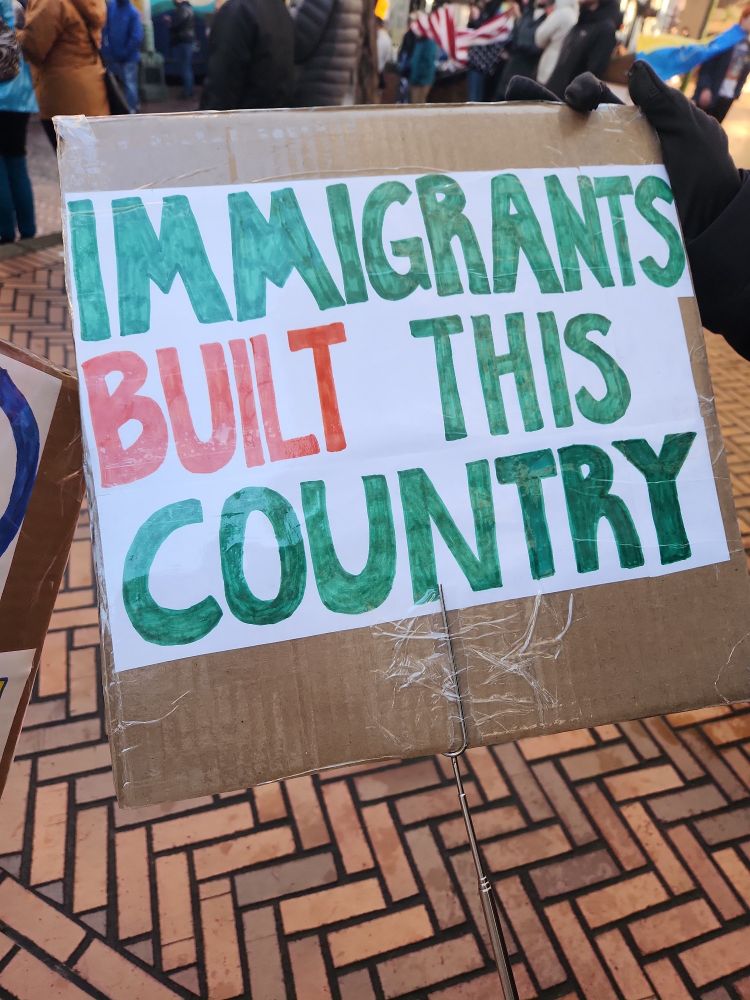 IMMIGRANTS
BUILT THIS
COUNTRY